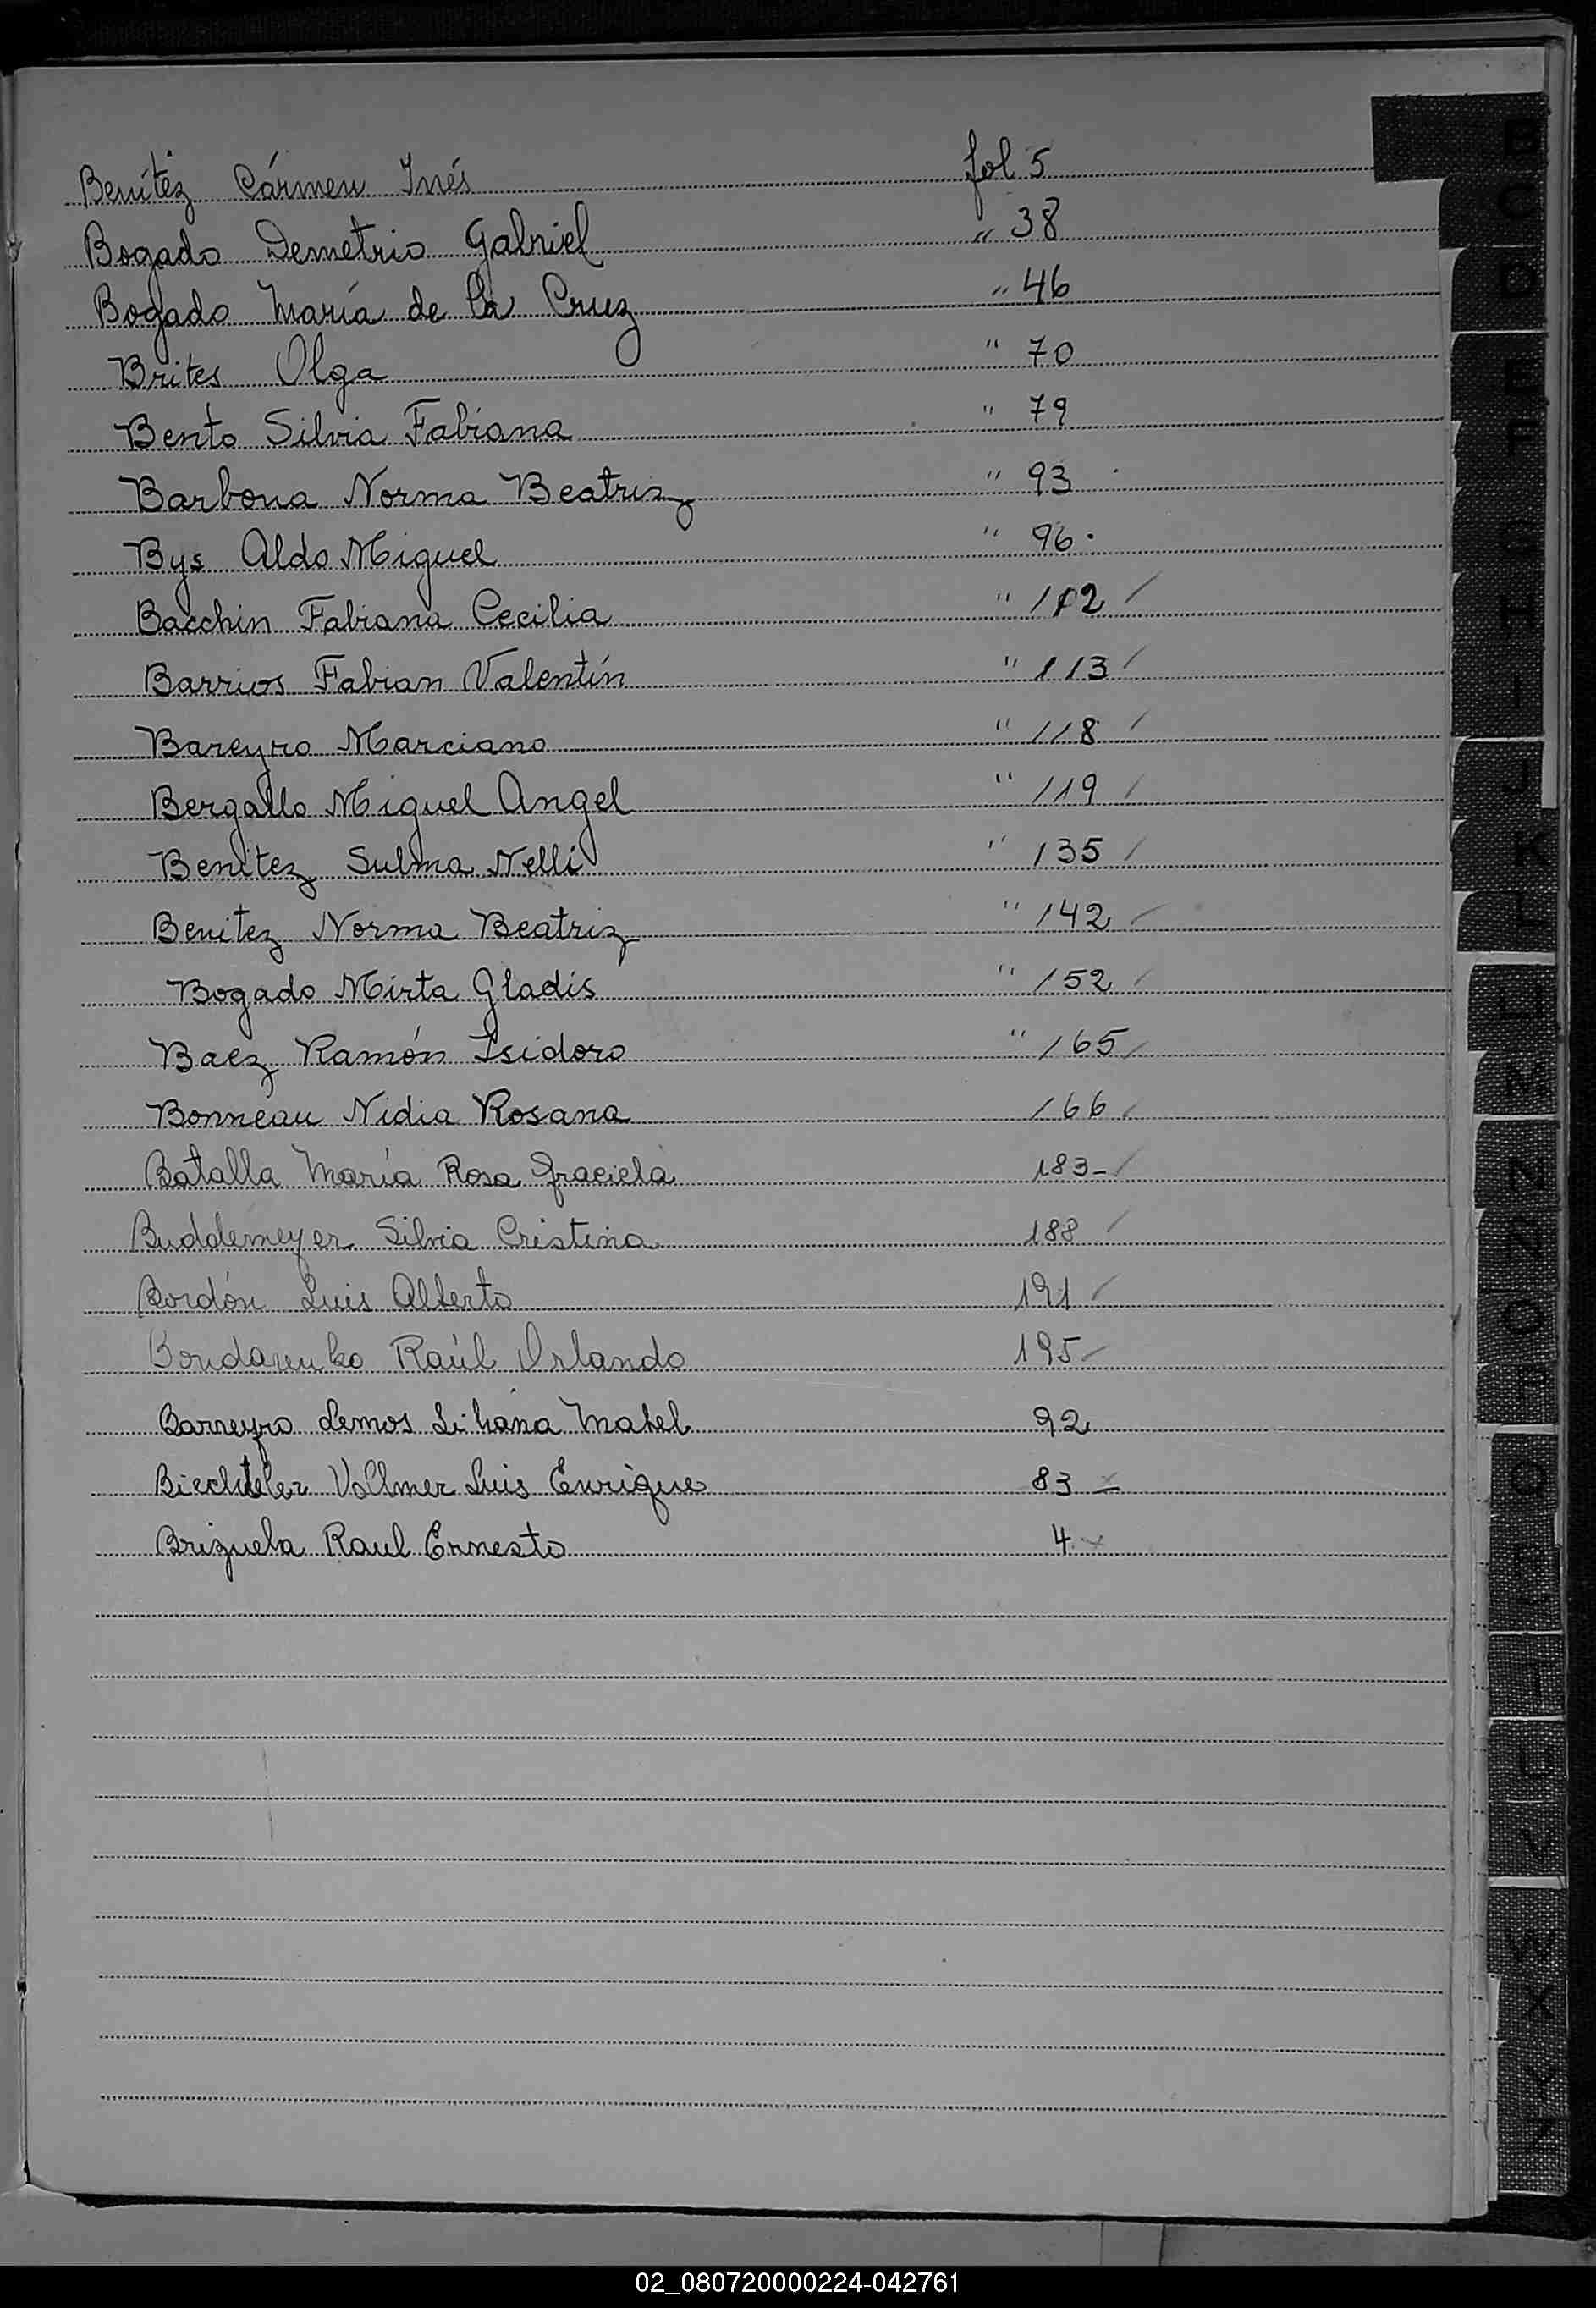 Benítez Cármen Inés fol 5
Bogado Demetrio Gabriel " 38
Bogado María de la Cruz " 46
Brites Olga " 70
Bento Silvia Fabiana " 79
Barbona Norma Beatriz " 93
Bys Aldo Miguel " 96
Bacchin Fabiana Cecilia "
Barrios Fabian Valentín " 113
Bareyro Marciano " 118
Bergallo Miguel Angel " 119
Benitez Sulma Nelli " 135
Benitez Norma Beatriz " 142
Bogado Mirta Gladis " 152
Baez Ramón Isidoro " 165
Bonneau Nidia Rosana 166
Batalla María Rosa Graciela 183
Buddemeyer Silvia Cristina 188
Bordón Luis Alberto 191
Raúl Orlando 195
Barreyro Lemos Liliana Mabel 92
Biechteler Vollmer Luis Enrique 83
Brizuela Raul Ernesto 4
B
C
D
E
F
G
H
I
J
K
L
Ll
M
N
Ñ
O
P
Q
R
T
U
V
W
X
Y
Z
02_080720000224-042761